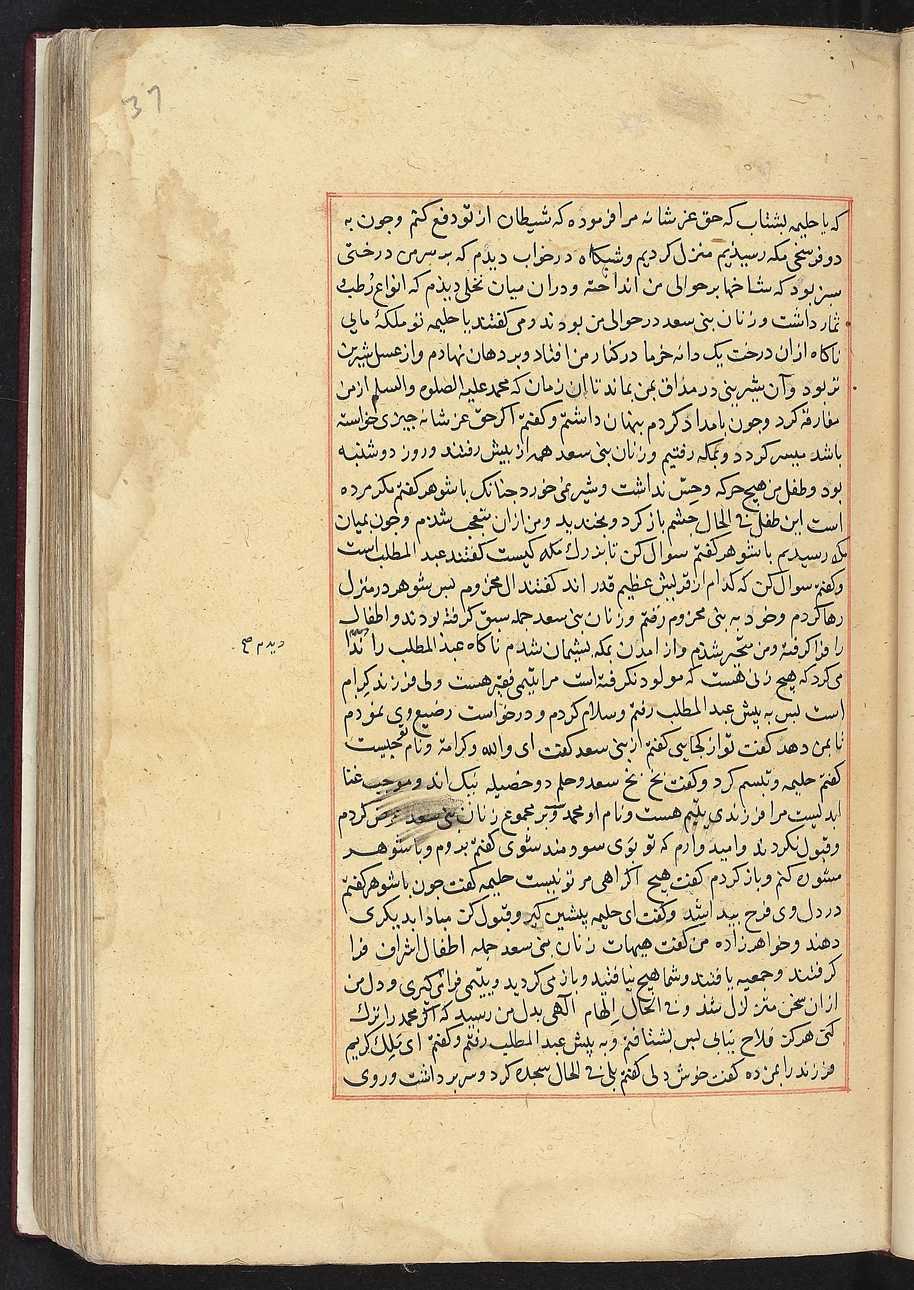 37
که یا حلیمه بشتاب که حق عز شانه مرا فرموده که شیطان از تو دفع کنم وجون به
دو فرسخی مکه رسیدیم منزل کردیم و شبکاه در خواب دیدم که بر سر من درختی
سبز بود که شاخها بر حوالی من انداخته و در ان میان نخلی دیدم که انواع رطب
ثمار داشت و زنان بنی سعد در حوالی من بودند و می کفتند یا حلیمه تو ملکهٔ مایی
ناکاه از ان درخت یک دانه خرما در کنار من افتاد و بر دهان نهادم و از عسل شیرین
تر بود و آن شیرینی در مذاق من بماند تا ان زمان که محمد علیه الصلوه والسلم از من
مفارقه کرد وجون بامداد کردم پنهان داشتم و کفتم اکر حق عز شانه جیزی خواسته
باشد میسر کردد و بمکه رفتیم و زنان بنی سعد همه از پیش رفتند و روز دوشنبه
بود و طفل من هیچ حرکه و حس نداشت و شیر نمی خورد جنانک با شوهر کفتم مکر مرده
است این طفل فی الحال جشم باز کرد و بخندید و من از ان بتعجب شدم وجون بمیان
مکه رسیدیم با شوهر کفتم سوال کن تا بزرك مکه کیست کفتند عبد المطلب است
و کفتم سوال کن که کدام از قریش عظیم قدر اند کفتند ال مخزوم پس شوهر در منزل
رها کردم و خود به بنی مخزوم رفتم و زنان بنی سعد جمله سبق کرفته بودند و اطفال
را فرا کرفته و من متحیر شدم و از امدن بمکه پشیمان شدم ناکاه عبد المطلب را ندا
دیدم صح
می کرد که هیچ زنی هست که مولود نکرفته است مرا یتیمی فقیر هست ولی فرزند کرام
است پس به پیش عبد المطلب رفتم و سلام کردم و درخواست رضیع وی نمودم
تا بمن دهد کفت تو از کجایی کفتم از بنی سعد کفت ای والله و کرامة و نام تو جیست
کفتم حلیمه و تبسم کرد و کفت بخ بخ سعد و حلم دو خصیله نیک اند و موجب غنا
ابدیست مرا فرزندی یتیم هست و نام او محمد و بر مجموع زنان بنی سعد عرض کردم
و قبول نکردند و امید وارم که تو بوی سودمند شوی کفتم بروم و با شوهر
مشوره کنم و باز کردم کفت هیچ اکراهی مر تو نیست حلیمه کفت جون با شوهر کفتم
در دل وی فرح پیدا شد و کفت ای حلیمه پیشین کیر و قبول کن مبادا بدیکری
دهند و خواهرزاده من کفت هیهات زنان بنی سعد جمله اطفال اشراف فرا
کرفتند و جمعیه یافتند و شما هیچ نیافتید و باز می کردید و یتیمی فرا می کیری و دل من
از ان سخن متزلزل شد و فی الحال الهام الهی بدل من رسید که اکر محمد را ترك
کنی هرکز فلاح نیابی پس بشتافتم و به پیش عبد المطلب رفتم و کفتم ای ملك کریم
فرزند را بمن ده کفت خوش دلی کفتم بلی فی الحال سجده کرد و سر بر داشت و روی